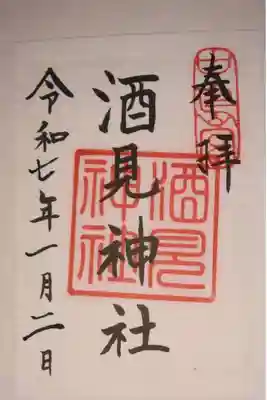 奉拝
酒見神社
令和七年一月二日
酒見
神社